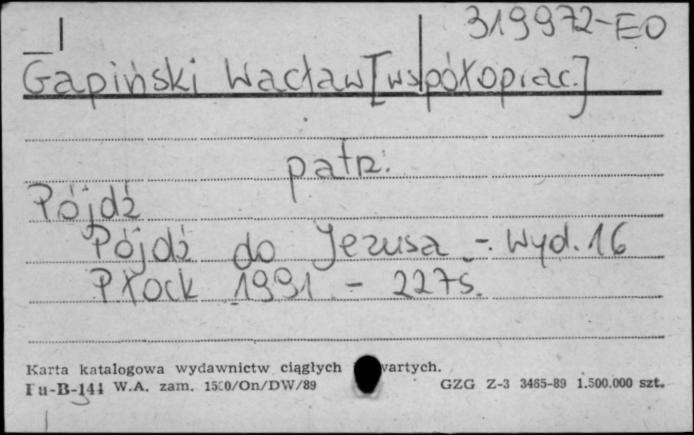 319972-EO
Gapiński Wacław [współoprac.]
patrz:
Pójdź
Pójdź do Jezusa. - Wyd. 16
Płock 1991 - 227s.
Karta katalogowa wydawnictw ciągłych wartych.
Pu-B-144 W.A. zam. 1500/On/DW/89 GZG Z-3 3465-89 1.500.000 szt.